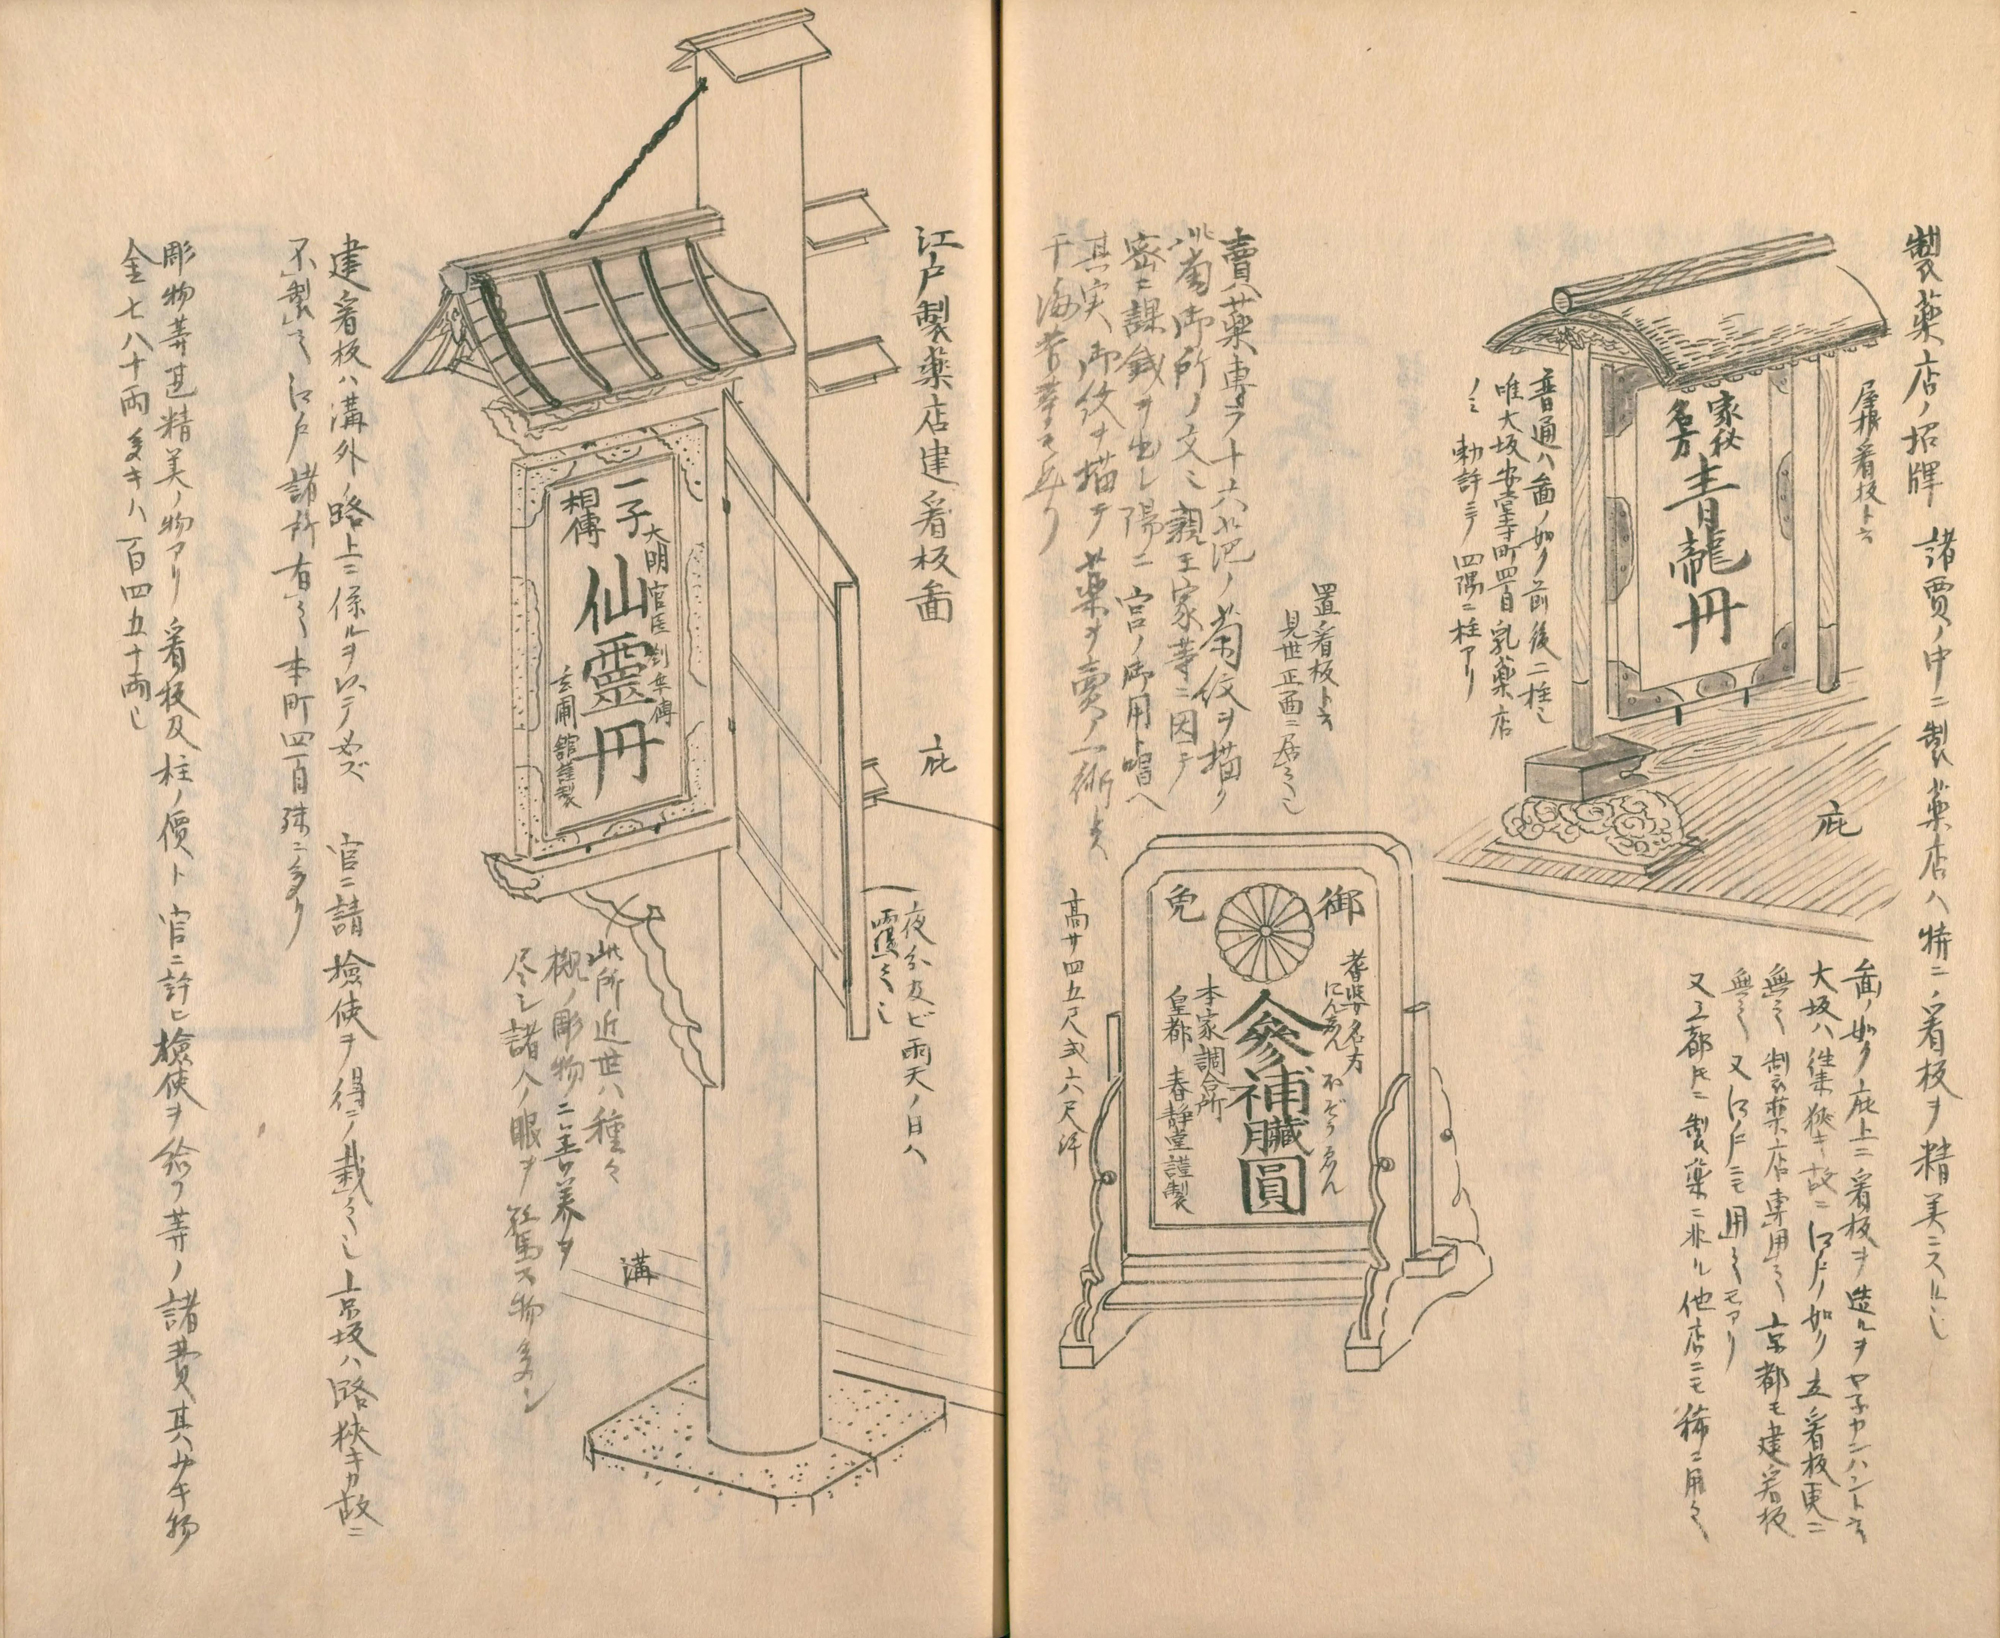 製薬店ノ招牌 諸賈ノ中ニ製薬店ハ特ニ看板ヲ精美ニスル也
屋根看板ト云
家秘
名方
青龍丹
普通ハ畵ノ如ク前後二柱也
唯大坂安堂寺町四目乳薬店
ノミ勅許ニテ四隅ニ柱アリ
庇
畵ノ如ク庇上ニ看板ヲ造ルヲヤネカンハント云
大坂ハ往来狭キ故ニ江戸ノ如ク立看板更ニ
無之製薬店専用之京都モ建看板
無之又江戸ニモ用之モアリ
又三都トモニ製薬ニ非ル他店ニモ稀ニ用之
置看板ト云
見世正面ニ居之也
賣薬専ラ十六葩ノ菊紋ヲ描ク
此菊御所ノ文也親王家等ニ因テ
密ニ課銭ヲ出シ陽ニ宮ノ御用ト唱ヘ
其実御紋ヲ描テ薬ヲ賣ノ一術トス
御
免
耆婆名方
にんじん ほぞうゑん
人參補臓圓
本家調合所
皇都 春静堂謹製
高サ四五尺或六尺許
江戸製薬店建看板畵
庇
夜分及ビ雨天ノ日ハ
覆之也
一子
相傳
大明官医
仙靈丹
玄圃館謹製
此所近世ハ種々
槻ノ彫物ニ善美ヲ
尽シ諸人ノ眼ヲ驚ス物多シ
溝
建看板ハ溝外ノ路上ニ係ルヲ以テ必ズ 官ニ請檢使ヲ得テ栽之也京坂ハ路狭キカ故ニ
不製之江戸諸所有之本町四目殊ニ多り
彫物等甚精美ノ物アリ看板及柱ノ價ト官ニ許ヒ檢使ヲ給フ等ノ諸費其少キ物
金七八十両多キハ百四五十両也